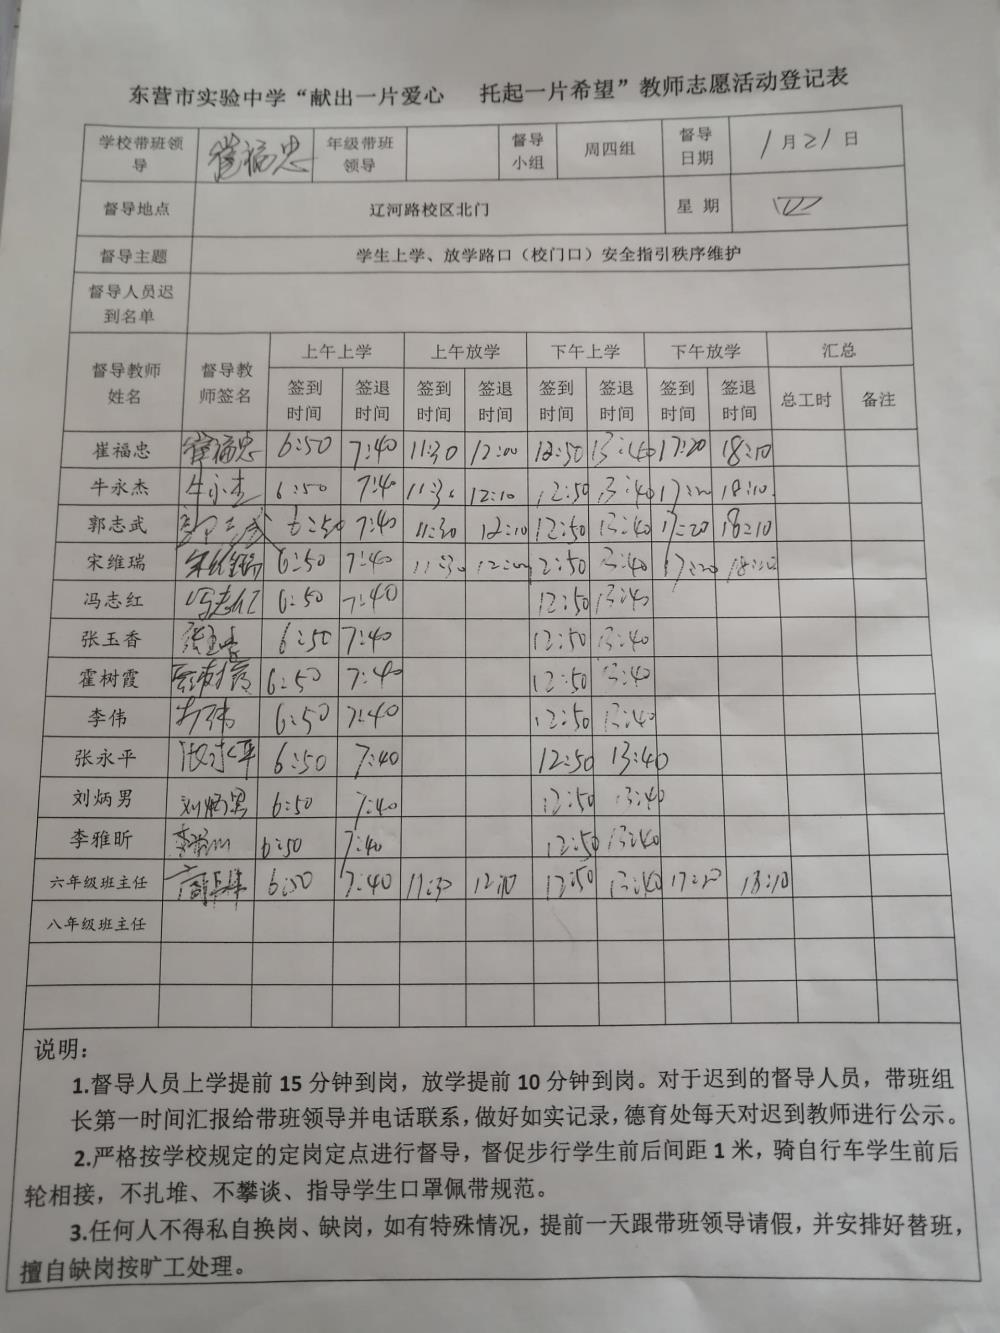 东营市实验中学“献出一片爱心 托起一片希望”教师志愿活动登记表
学校带班领导 崔福忠 年级带班领导 督导小组 周四组 督导日期 1月21日
督导地点 辽河路校区北门 星 期 四
督导主题 学生上学、放学路口（校门口）安全指引秩序维护
督导人员迟到名单
督导教师姓名 督导教师签名 上午上学 上午放学 下午上学 下午放学 汇总
签到时间 签退时间 签到时间 签退时间 签到时间 签退时间 签到时间 签退时间 总工时 备注
崔福忠 崔福忠 6:50 7:40 11:30 12:00 12:50 13:40 17:20 18:10
牛永杰 牛永杰 6:50 7:40 11:30 12:10 12:50 13:40 17:20 18:10
郭志武 郭志武 6:50 7:40 11:30 12:10 12:50 13:40 17:20 18:10
宋维瑞 宋维瑞 6:50 7:40 11:30 12:00 12:50 13:40 17:20 18:10
冯志红 冯志红 6:50 7:40 12:50 13:40
张玉香 张玉香 6:50 7:40 12:50 13:40
霍树霞 霍树霞 6:50 7:40 12:50 13:40
李伟 李伟 6:50 7:40 12:50 13:40
张永平 张永平 6:50 7:40 12:50 13:40
刘炳男 刘炳男 6:50 7:40 12:50 13:40
李雅昕 6:50 7:40 12:50 13:40
六年级班主任 6:50 7:40 11:30 12:10 12:50 13:40 17:20 18:10
八年级班主任
说明：
1.督导人员上学提前 15 分钟到岗，放学提前 10 分钟到岗。对于迟到的督导人员，带班组
长第一时间汇报给带班领导并电话联系，做好如实记录，德育处每天对迟到教师进行公示。
2.严格按学校规定的定岗定点进行督导，督促步行学生前后间距 1 米，骑自行车学生前后
轮相接，不扎堆、不攀谈、指导学生口罩佩带规范。
3.任何人不得私自换岗、缺岗，如有特殊情况，提前一天跟带班领导请假，并安排好替班，
擅自缺岗按旷工处理。